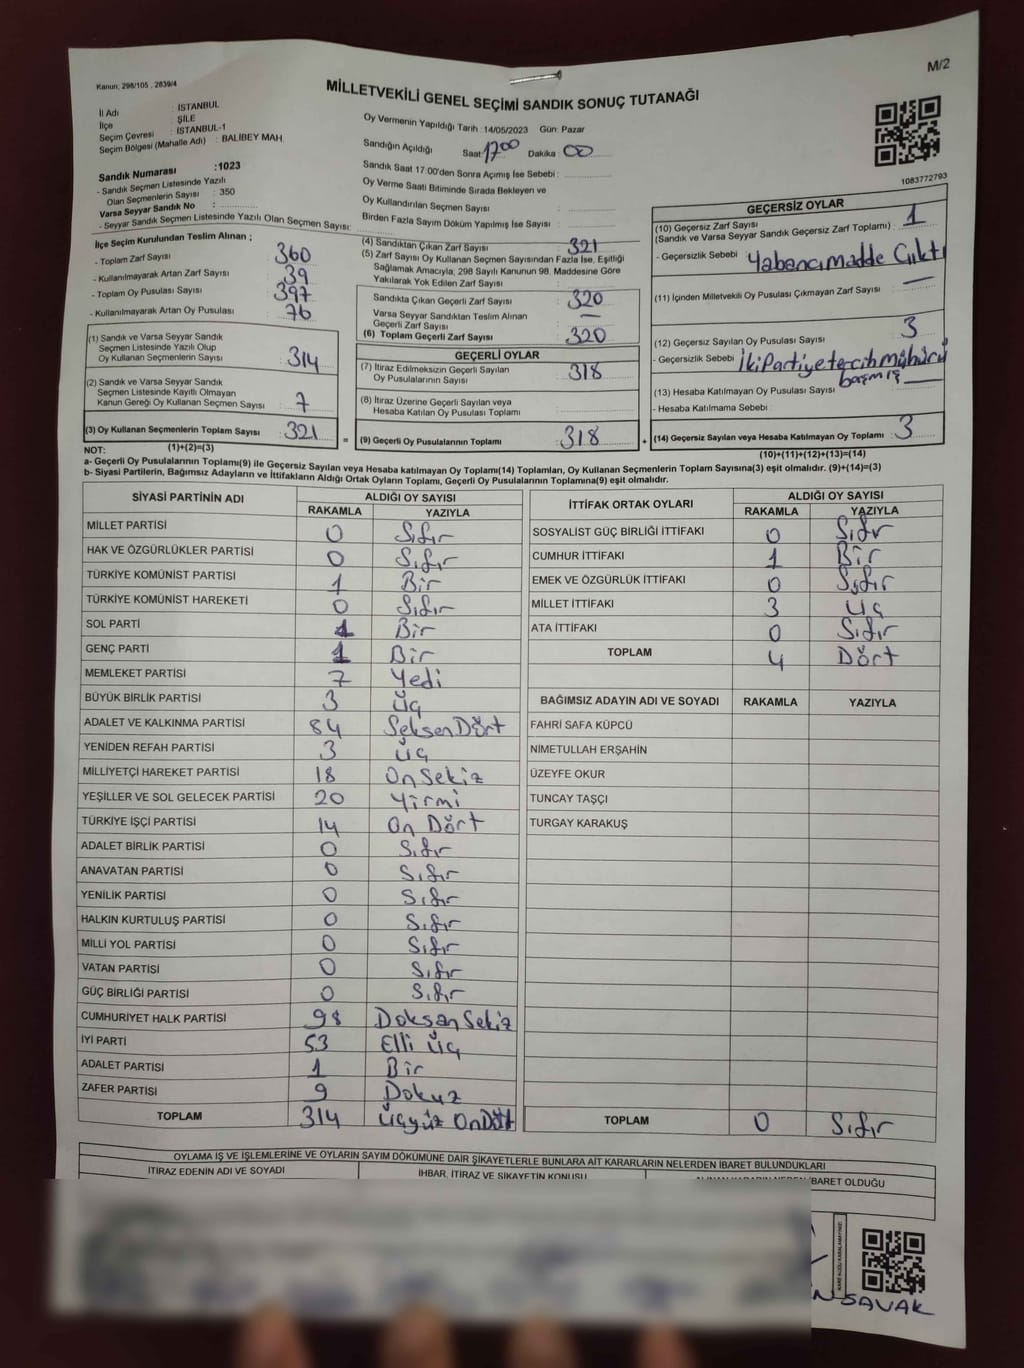 M/2
Kanun, 298/105 , 2839/4
MİLLETVEKİLİ GENEL SEÇİMİ SANDIK SONUÇ TUTANAĞI
İl Adı : İSTANBUL
İlçe : ŞİLE
Seçim Çevresi : İSTANBUL-1
Seçim Bölgesi (Mahalle Adı) : BALİBEY MAH.
Sandık Numarası :1023
- Sandık Seçmen Listesinde Yazılı
Olan Seçmenlerin Sayısı : 350
Varsa Seyyar Sandık No :
- Seyyar Sandık Seçmen Listesinde Yazılı Olan Seçmen Sayısı:
Oy Vermenin Yapıldığı Tarih : 14/05/2023 Gün: Pazar
Sandığın Açıldığı Saat: 17 00 Dakika : 00
Sandık Saat 17.00'den Sonra Açımış İse Sebebi :
Oy Verme Saati Bitiminde Sırada Bekleyen ve
Oy Kullandırılan Seçmen Sayısı :
Birden Fazla Sayım Döküm Yapılmış İse Sayısı :
1083772793
İlçe Seçim Kurulundan Teslim Alınan ;
- Toplam Zarf Sayısı : 360
- Kullanılmayarak Artan Zarf Sayısı : 39
- Toplam Oy Pusulası Sayısı : 397
- Kullanılmayarak Artan Oy Pusulası : 76
(1) Sandık ve Varsa Seyyar Sandık
Seçmen Listesinde Yazılı Olup
Oy Kullanan Seçmenlerin Sayısı : 314
(2) Sandık ve Varsa Seyyar Sandık
Seçmen Listesinde Kayıtlı Olmayan
Kanun Gereği Oy Kullanan Seçmen Sayısı : 7
(3) Oy Kullanan Seçmenlerin Toplam Sayısı : 321
(1)+(2)=(3)
(4) Sandıktan Çıkan Zarf Sayısı : 321
(5) Zarf Sayısı Oy Kullanan Seçmen Sayısından Fazla İse, Eşitliği
Sağlamak Amacıyla, 298 Sayılı Kanunun 98. Maddesine Göre
Yakılarak Yok Edilen Zarf Sayısı :
Sandıkta Çıkan Geçerli Zarf Sayısı : 320
Varsa Seyyar Sandıktan Teslim Alınan
Geçerli Zarf Sayısı : —
(6) Toplam Geçerli Zarf Sayısı : 320
GEÇERLİ OYLAR
(7) İtiraz Edilmeksizin Geçerli Sayılan
Oy Pusulalarının Sayısı : 318
(8) İtiraz Üzerine Geçerli Sayılan veya
Hesaba Katılan Oy Pusulası Toplamı :
= (9) Geçerli Oy Pusulalarının Toplamı : 318
GEÇERSİZ OYLAR
(10) Geçersiz Zarf Sayısı : 1
(Sandık ve Varsa Seyyar Sandık Geçersiz Zarf Toplamı)
- Geçersizlik Sebebi : Yabancı madde Çıktı
(11) İçinden Milletvekili Oy Pusulası Çıkmayan Zarf Sayısı : —
(12) Geçersiz Sayılan Oy Pusulası Sayısı : 3
- Geçersizlik Sebebi : İki Partiye tercih mühürü
basmış
(13) Hesaba Katılmayan Oy Pusulası Sayısı : —
- Hesaba Katılmama Sebebi :
+ (14) Geçersiz Sayılan veya Hesaba Katılmayan Oy Toplamı : 3
(10)+(11)+(12)+(13)=(14)
NOT:
a- Geçerli Oy Pusulalarının Toplamı(9) ile Geçersiz Sayılan veya Hesaba katılmayan Oy Toplamı(14) Toplamları, Oy Kullanan Seçmenlerin Toplam Sayısına(3) eşit olmalıdır. (9)+(14)=(3)
b- Siyasi Partilerin, Bağımsız Adayların ve İttifakların Aldığı Ortak Oyların Toplamı, Geçerli Oy Pusulalarının Toplamına(9) eşit olmalıdır.
SİYASİ PARTİNİN ADI ALDIĞI OY SAYISI
RAKAMLA YAZIYLA
MİLLET PARTİSİ 0 Sıfır
HAK VE ÖZGÜRLÜKLER PARTİSİ 0 Sıfır
TÜRKİYE KOMÜNİST PARTİSİ 1 Bir
TÜRKİYE KOMÜNİST HAREKETİ 0 Sıfır
SOL PARTİ 1 Bir
GENÇ PARTİ 1 Bir
MEMLEKET PARTİSİ 7 Yedi
BÜYÜK BİRLİK PARTİSİ 3 Üç
ADALET VE KALKINMA PARTİSİ 84 Seksen Dört
YENİDEN REFAH PARTİSİ 3 Üç
MİLLİYETÇİ HAREKET PARTİSİ 18 On Sekiz
YEŞİLLER VE SOL GELECEK PARTİSİ 20 Yirmi
TÜRKİYE İŞÇİ PARTİSİ 14 On Dört
ADALET BİRLİK PARTİSİ 0 Sıfır
ANAVATAN PARTİSİ 0 Sıfır
YENİLİK PARTİSİ 0 Sıfır
HALKIN KURTULUŞ PARTİSİ 0 Sıfır
MİLLİ YOL PARTİSİ 0 Sıfır
VATAN PARTİSİ 0 Sıfır
GÜÇ BİRLİĞİ PARTİSİ 0 Sıfır
CUMHURİYET HALK PARTİSİ 98 Doksan Sekiz
İYİ PARTİ 53 Elli Üç
ADALET PARTİSİ 1 Bir
ZAFER PARTİSİ 9 Dokuz
TOPLAM 314 Üçyüz On Dört
İTTİFAK ORTAK OYLARI ALDIĞI OY SAYISI
RAKAMLA YAZIYLA
SOSYALİST GÜÇ BİRLİĞİ İTTİFAKI 0 Sıfır
CUMHUR İTTİFAKI 1 Bir
EMEK VE ÖZGÜRLÜK İTTİFAKI 0 Sıfır
MİLLET İTTİFAKI 3 Üç
ATA İTTİFAKI 0 Sıfır
TOPLAM 4 Dört
BAĞIMSIZ ADAYIN ADI VE SOYADI RAKAMLA YAZIYLA
FAHRİ SAFA KÜPCÜ
NİMETULLAH ERŞAHİN
ÜZEYFE OKUR
TUNCAY TAŞÇI
TURGAY KARAKUŞ
TOPLAM 0 Sıfır
OYLAMA İŞ VE İŞLEMLERİNE VE OYLARIN SAYIM DÖKÜMÜNE DAİR ŞİKAYETLERLE BUNLARA AİT KARARLARIN NELERDEN İBARET BULUNDUKLARI
İTİRAZ EDENİN ADI VE SOYADI
İHBAR, İTİRAZ VE ŞİKAYETİN KONUSU
İBARET OLDUĞU
SAVAK